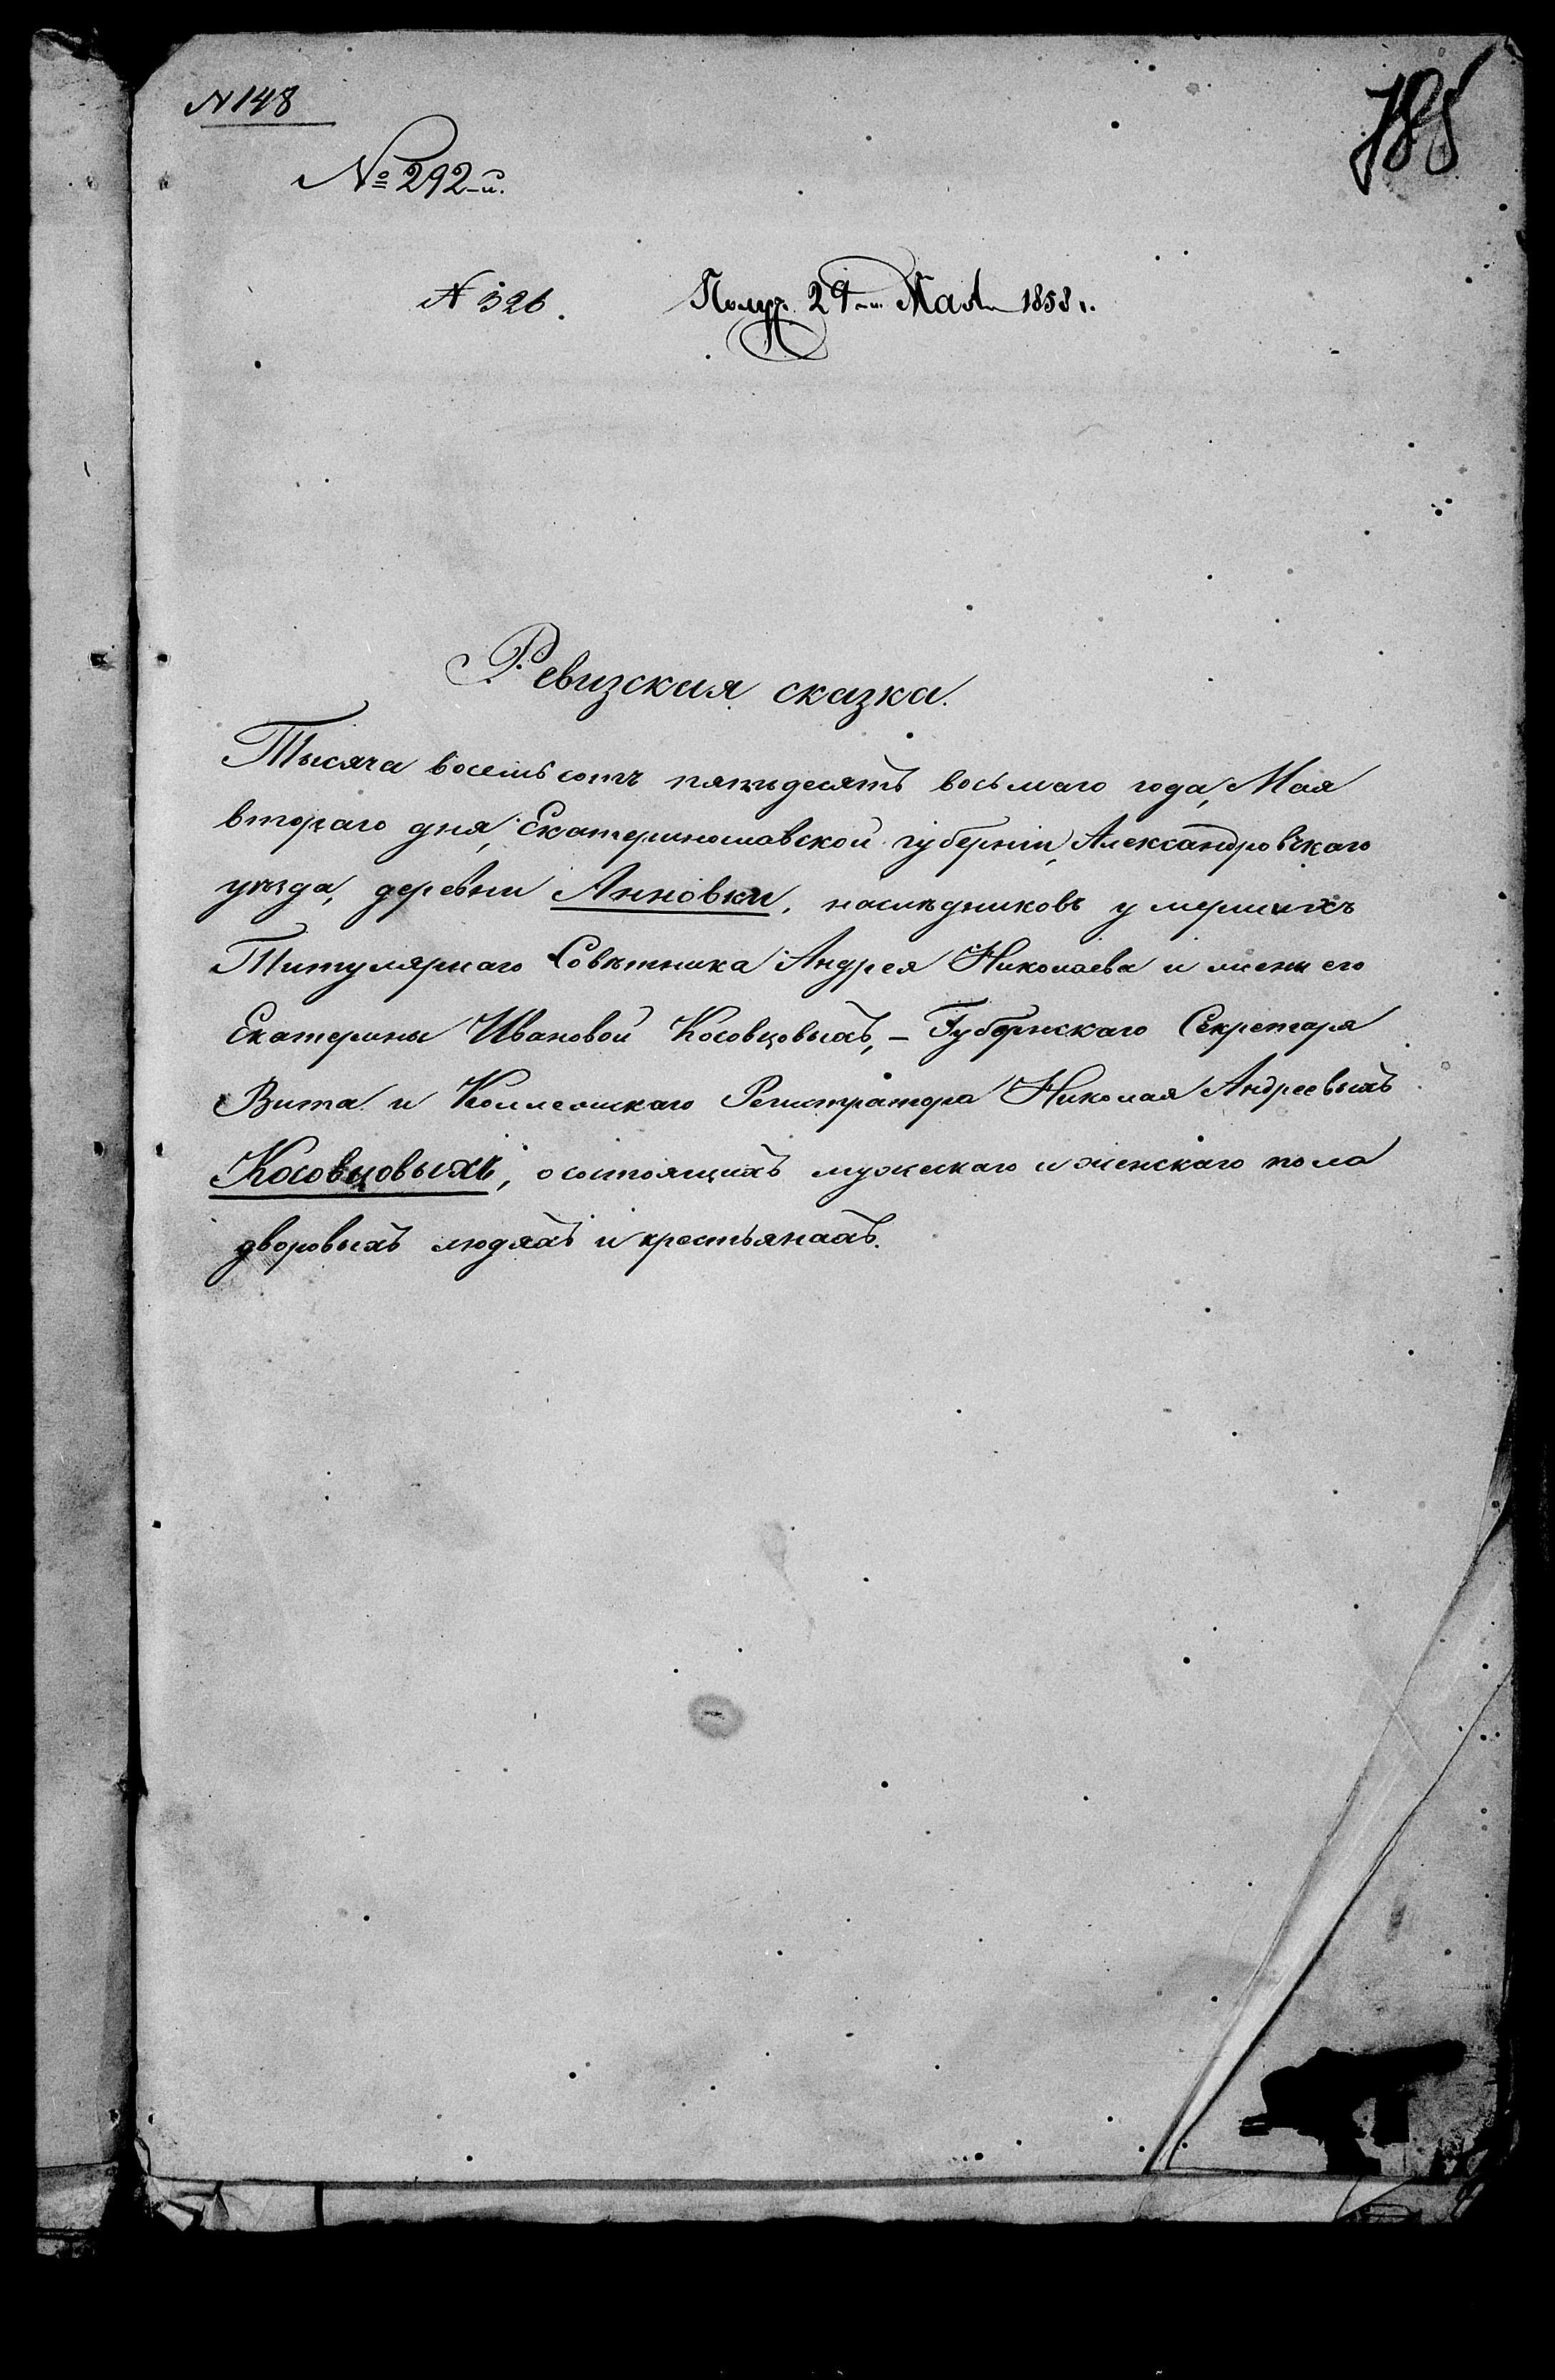 N 148
785
№ 292-й.
N 326. Получ. 29-го Мая 1858 г.
Ревизская сказка.
Тысяча восемьсотъ пятьдесятъ восьмаго года, Мая
втораго дня, Екатеринославской губерніи, Александровскаго
уѣзда, деревни Анновки, наслѣдниковъ умершихъ
Титулярнаго Совѣтника Андрея Николаева и жены его
Екатерины Ивановой Косовцовыхъ, – Губернскаго Секретаря
Вита и Коллежскаго Регистратора Николая Андреевыхъ
Косовцовыхъ, о состоящихъ мужескаго и женскаго пола
дворовыхъ людяхъ и крестьянахъ.